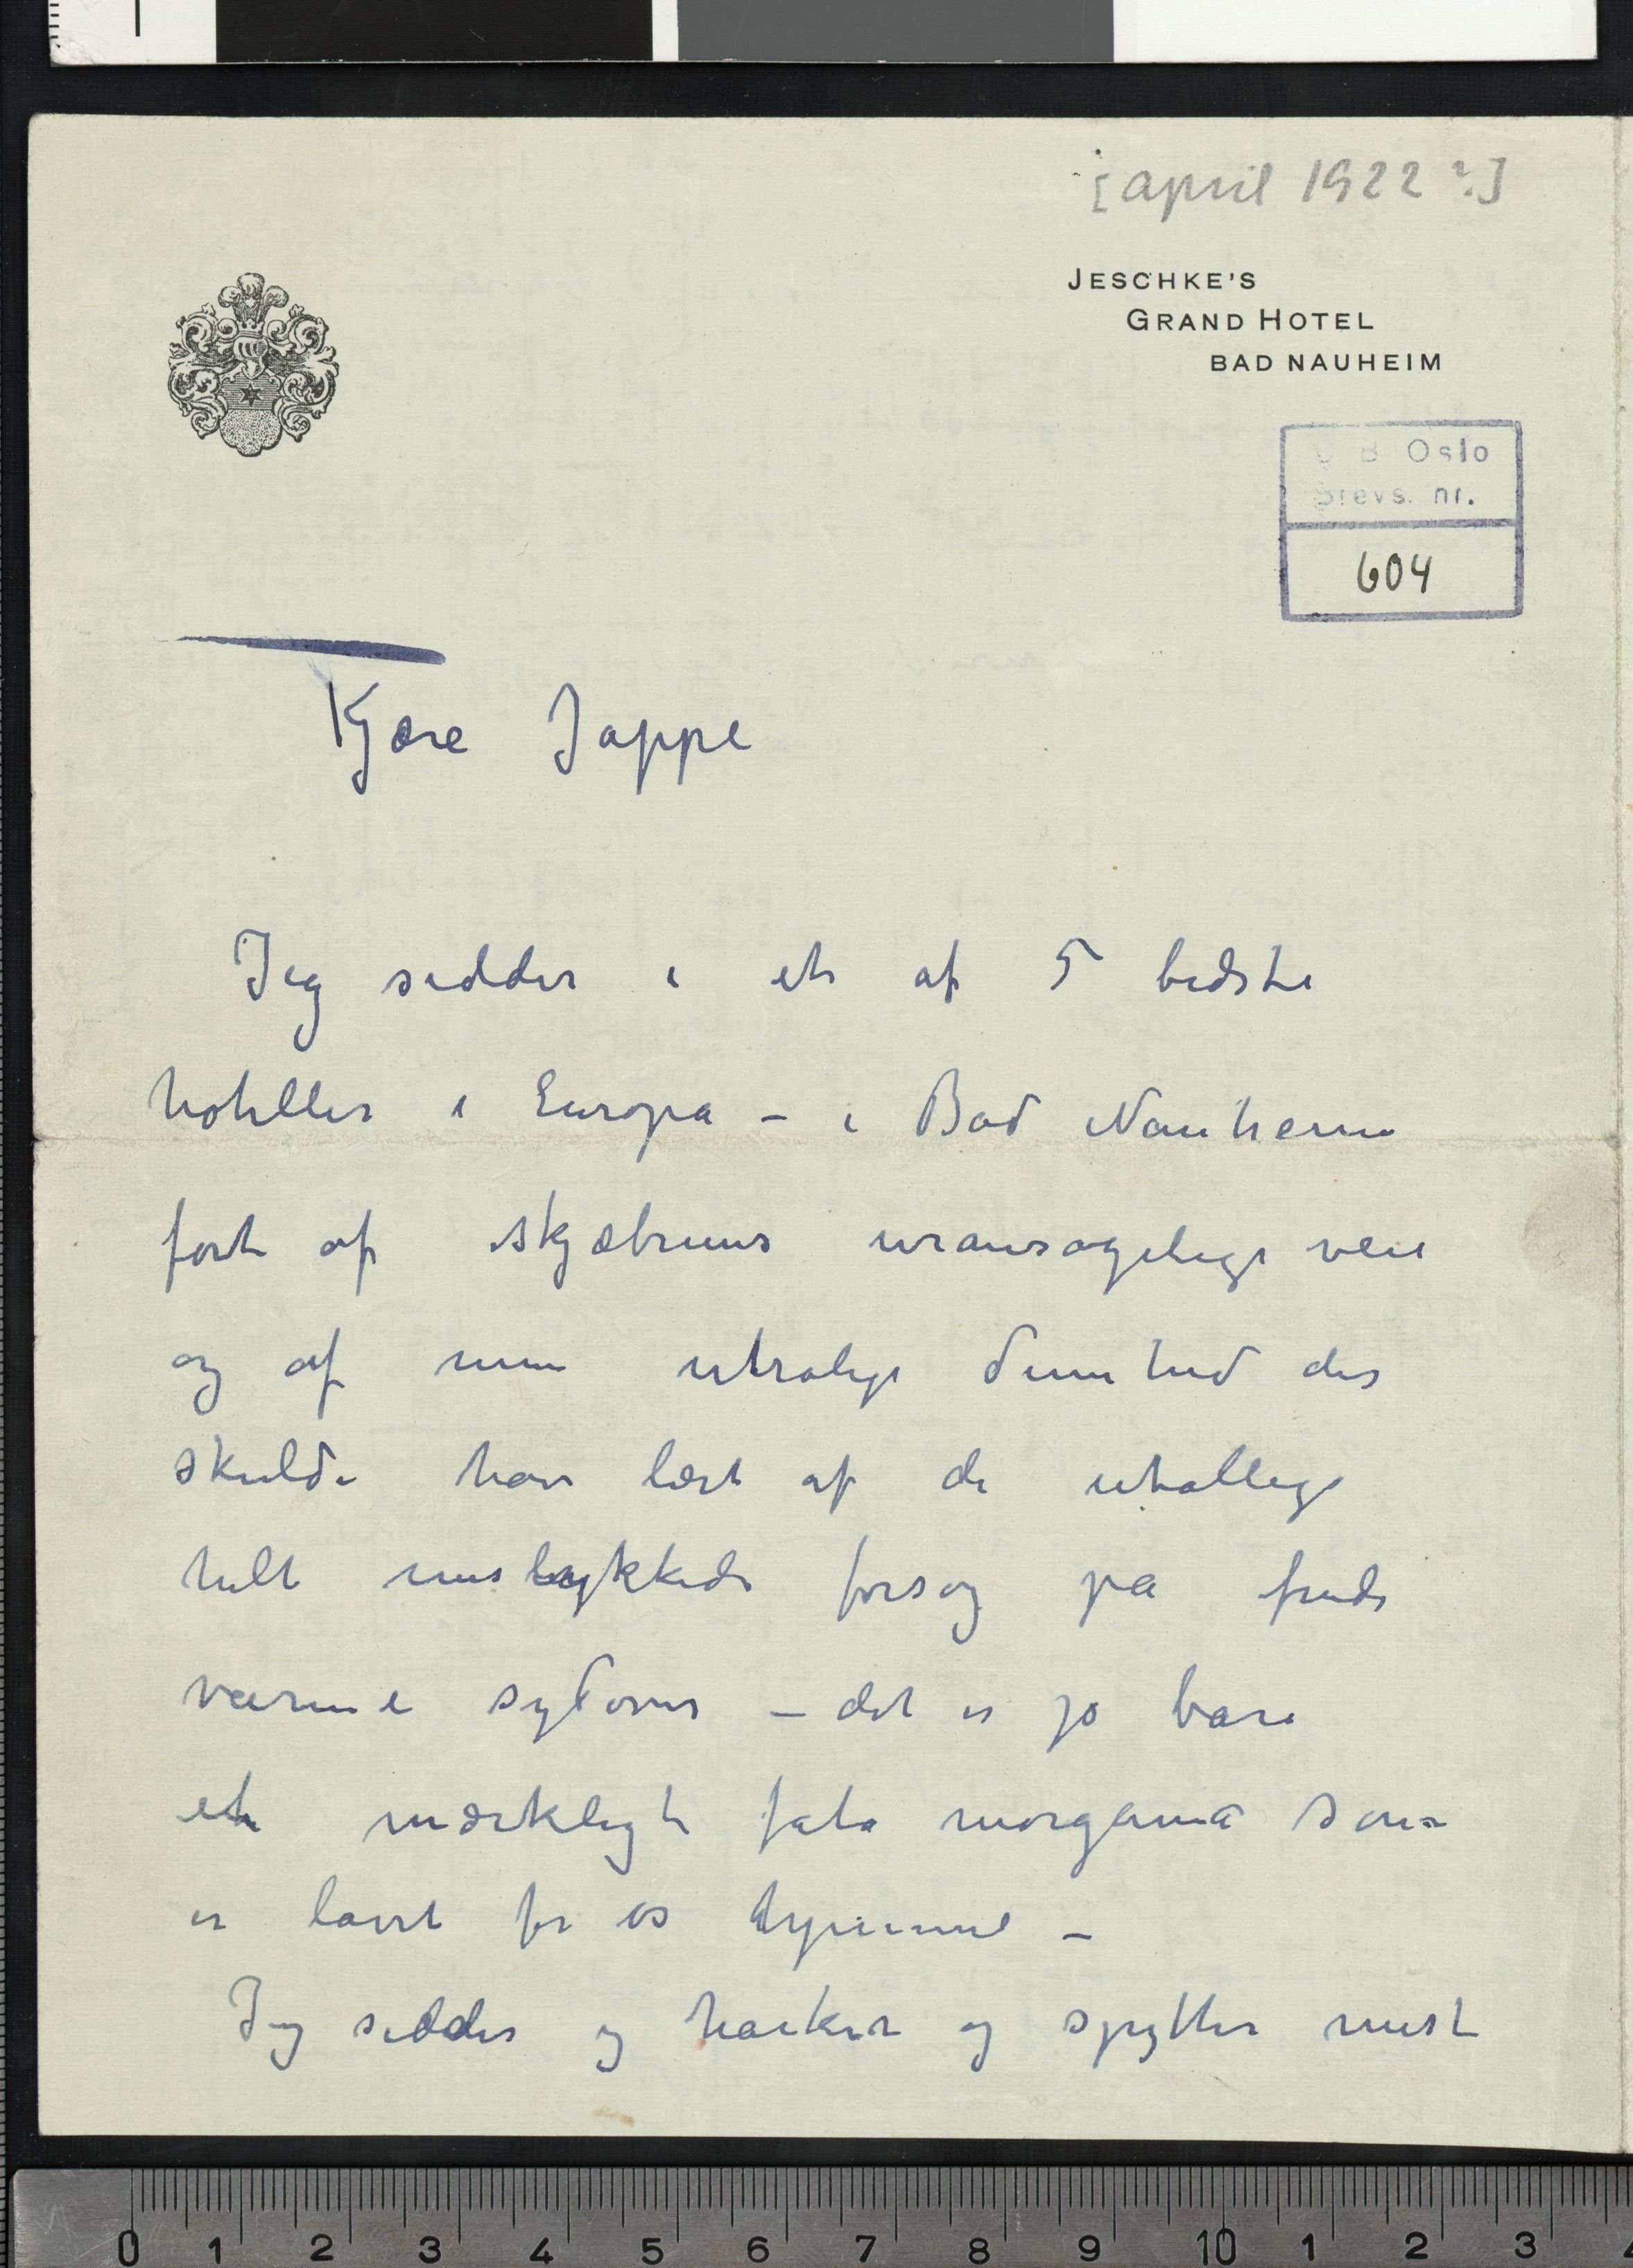 [april 1922?]
JESCHKE'S
GRAND HOTEL
BAD NAUHEIM
U B Oslo
Brevs. nr.
604
Kjære Jappe
Jeg sidder i et af 5 bedste
hoteller i Europa – i Bad Nauheim
ført af skjæbnens uransagelige veie
og af min utrolige dumhed der
skulde have lært af de utallige
helt mislykkede forsøg på finde
varme sydover – det er jo bare
et mærkeligt fata morgana som
er lavet for os
Jeg sidder og harker og spytter mest
0 1 2 3 4 5 6 7 8 9 10 1 2 3